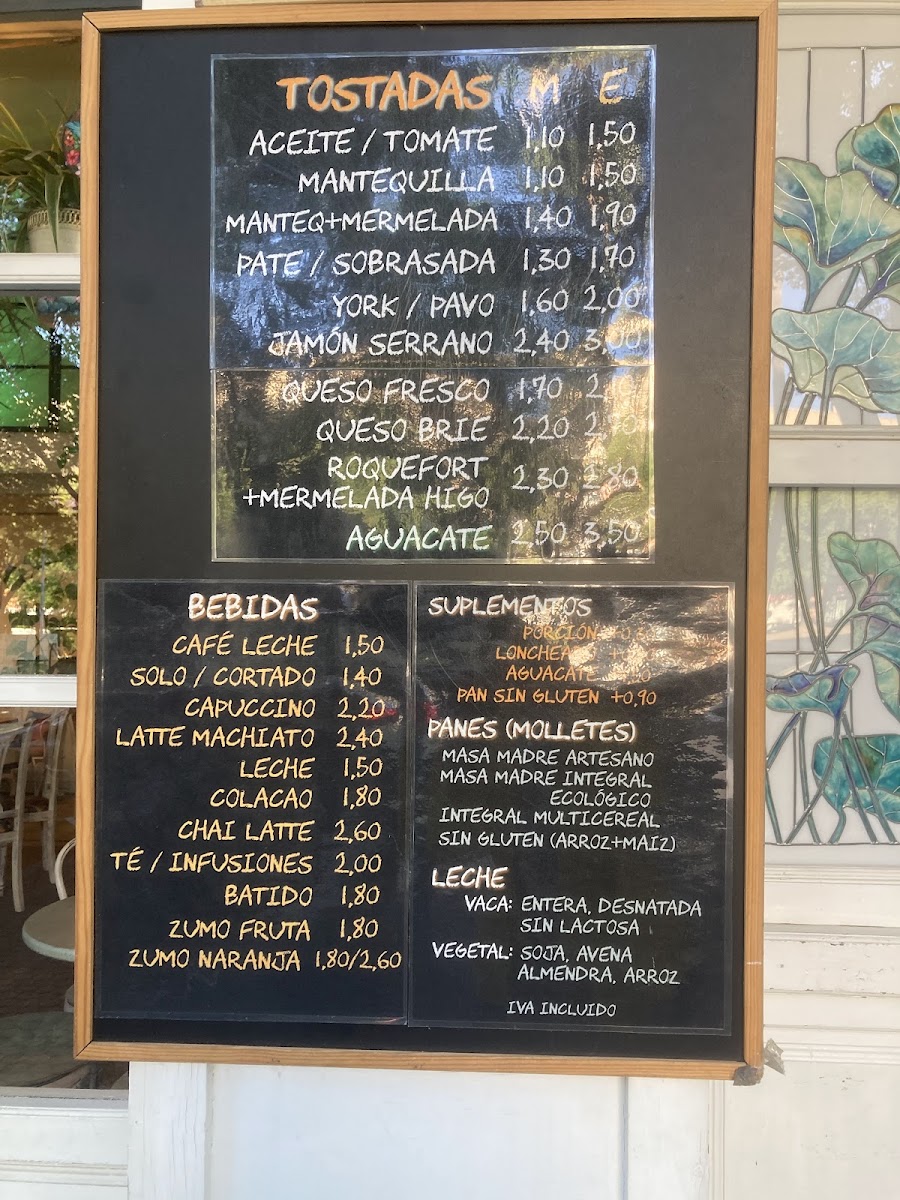 TOSTADAS M E
ACEITE / TOMATE 1,10 1,50
MANTEQUILLA 1,10 1,50
MANTEQ+MERMELADA 1,40 1,90
PATE / SOBRASADA 1,30 1,70
YORK / PAVO 1,60 2,00
JAMÓN SERRANO 2,40 3,00
QUESO FRESCO 1,70
QUESO BRIE 2,20
ROQUEFORT
+MERMELADA HIGO 2,30 2,80
AGUACATE 2,50 3,50
BEBIDAS
CAFÉ LECHE 1,50
SOLO / CORTADO 1,40
CAPUCCINO 2,20
LATTE MACHIATO 2,40
LECHE 1,50
COLACAO 1,80
CHAI LATTE 2,60
TÉ / INFUSIONES 2,00
BATIDO 1,80
ZUMO FRUTA 1,80
ZUMO NARANJA 1,80/2,60
SUPLEMENTOS
PORCIÓN
LONCHEADO
AGUACATE
PAN SIN GLUTEN +0,90
PANES (MOLLETES)
MASA MADRE ARTESANO
MASA MADRE INTEGRAL
ECOLÓGICO
INTEGRAL MULTICEREAL
SIN GLUTEN (ARROZ+MAIZ)
LECHE
VACA: ENTERA, DESNATADA
SIN LACTOSA
VEGETAL: SOJA, AVENA
ALMENDRA, ARROZ
IVA INCLUIDO